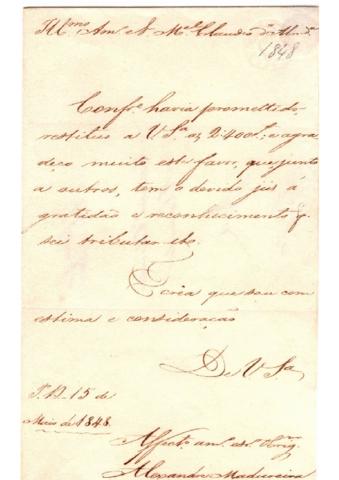 Illmo Amo Sr Mel Claudio
1848
Confe havia promettido,
restituo a V Sa os 2:400$; e agra
deço muito este favr, que, junto
a outros, tem o devido jus á
gratidão e reconhecimento q
sei tributar etc.
E creia que sou com
estima e consideração
De V Sa
S. P. 15 de
Maio de 1848.
Affecto amo e obrigo
Alexandre Madureira